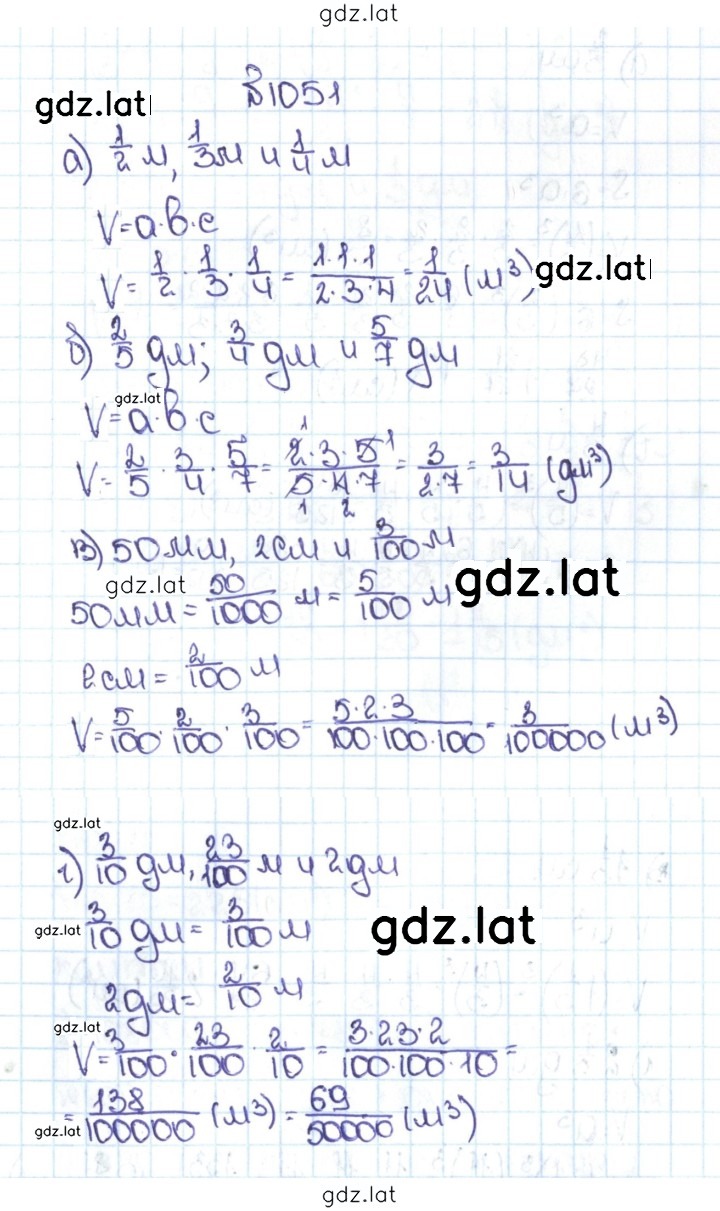 gdz.lat
№1051
gdz.lat
а) 1/2 м, 1/3 м и 1/4 м
V=a·b·c
V= 1/2 · 1/3 · 1/4 = 1·1·1/2·3·4 = 1/24 (м³), gdz.lat
б) 2/5 дм; 3/4 дм и 5/7 дм
gdz.lat
V=a·b·c
V= 2/5 · 3/4 · 5/7 = 2·3·5/5·4·7 = 3/2·7 = 3/14 (дм³)
1 1
1 2
в) 50мм, 2см и 3/100 м
gdz.lat gdz.lat
50мм= 50/1000 м= 5/100 м
2см= 2/100 м
V= 5/100 · 2/100 · 3/100 = 5·2·3/100·100·100 = 3/100000 (м³)
gdz.lat
г) 3/10 дм, 23/100 м и 2дм
gdz.lat 3/10 дм= 3/100 м gdz.lat
2дм= 2/10 м
gdz.lat
V= 3/100 · 23/100 · 2/10 = 3·23·2/100·100·10 =
= 138/100000 (м³) = 69/50000 (м³)
gdz.lat
gdz.lat